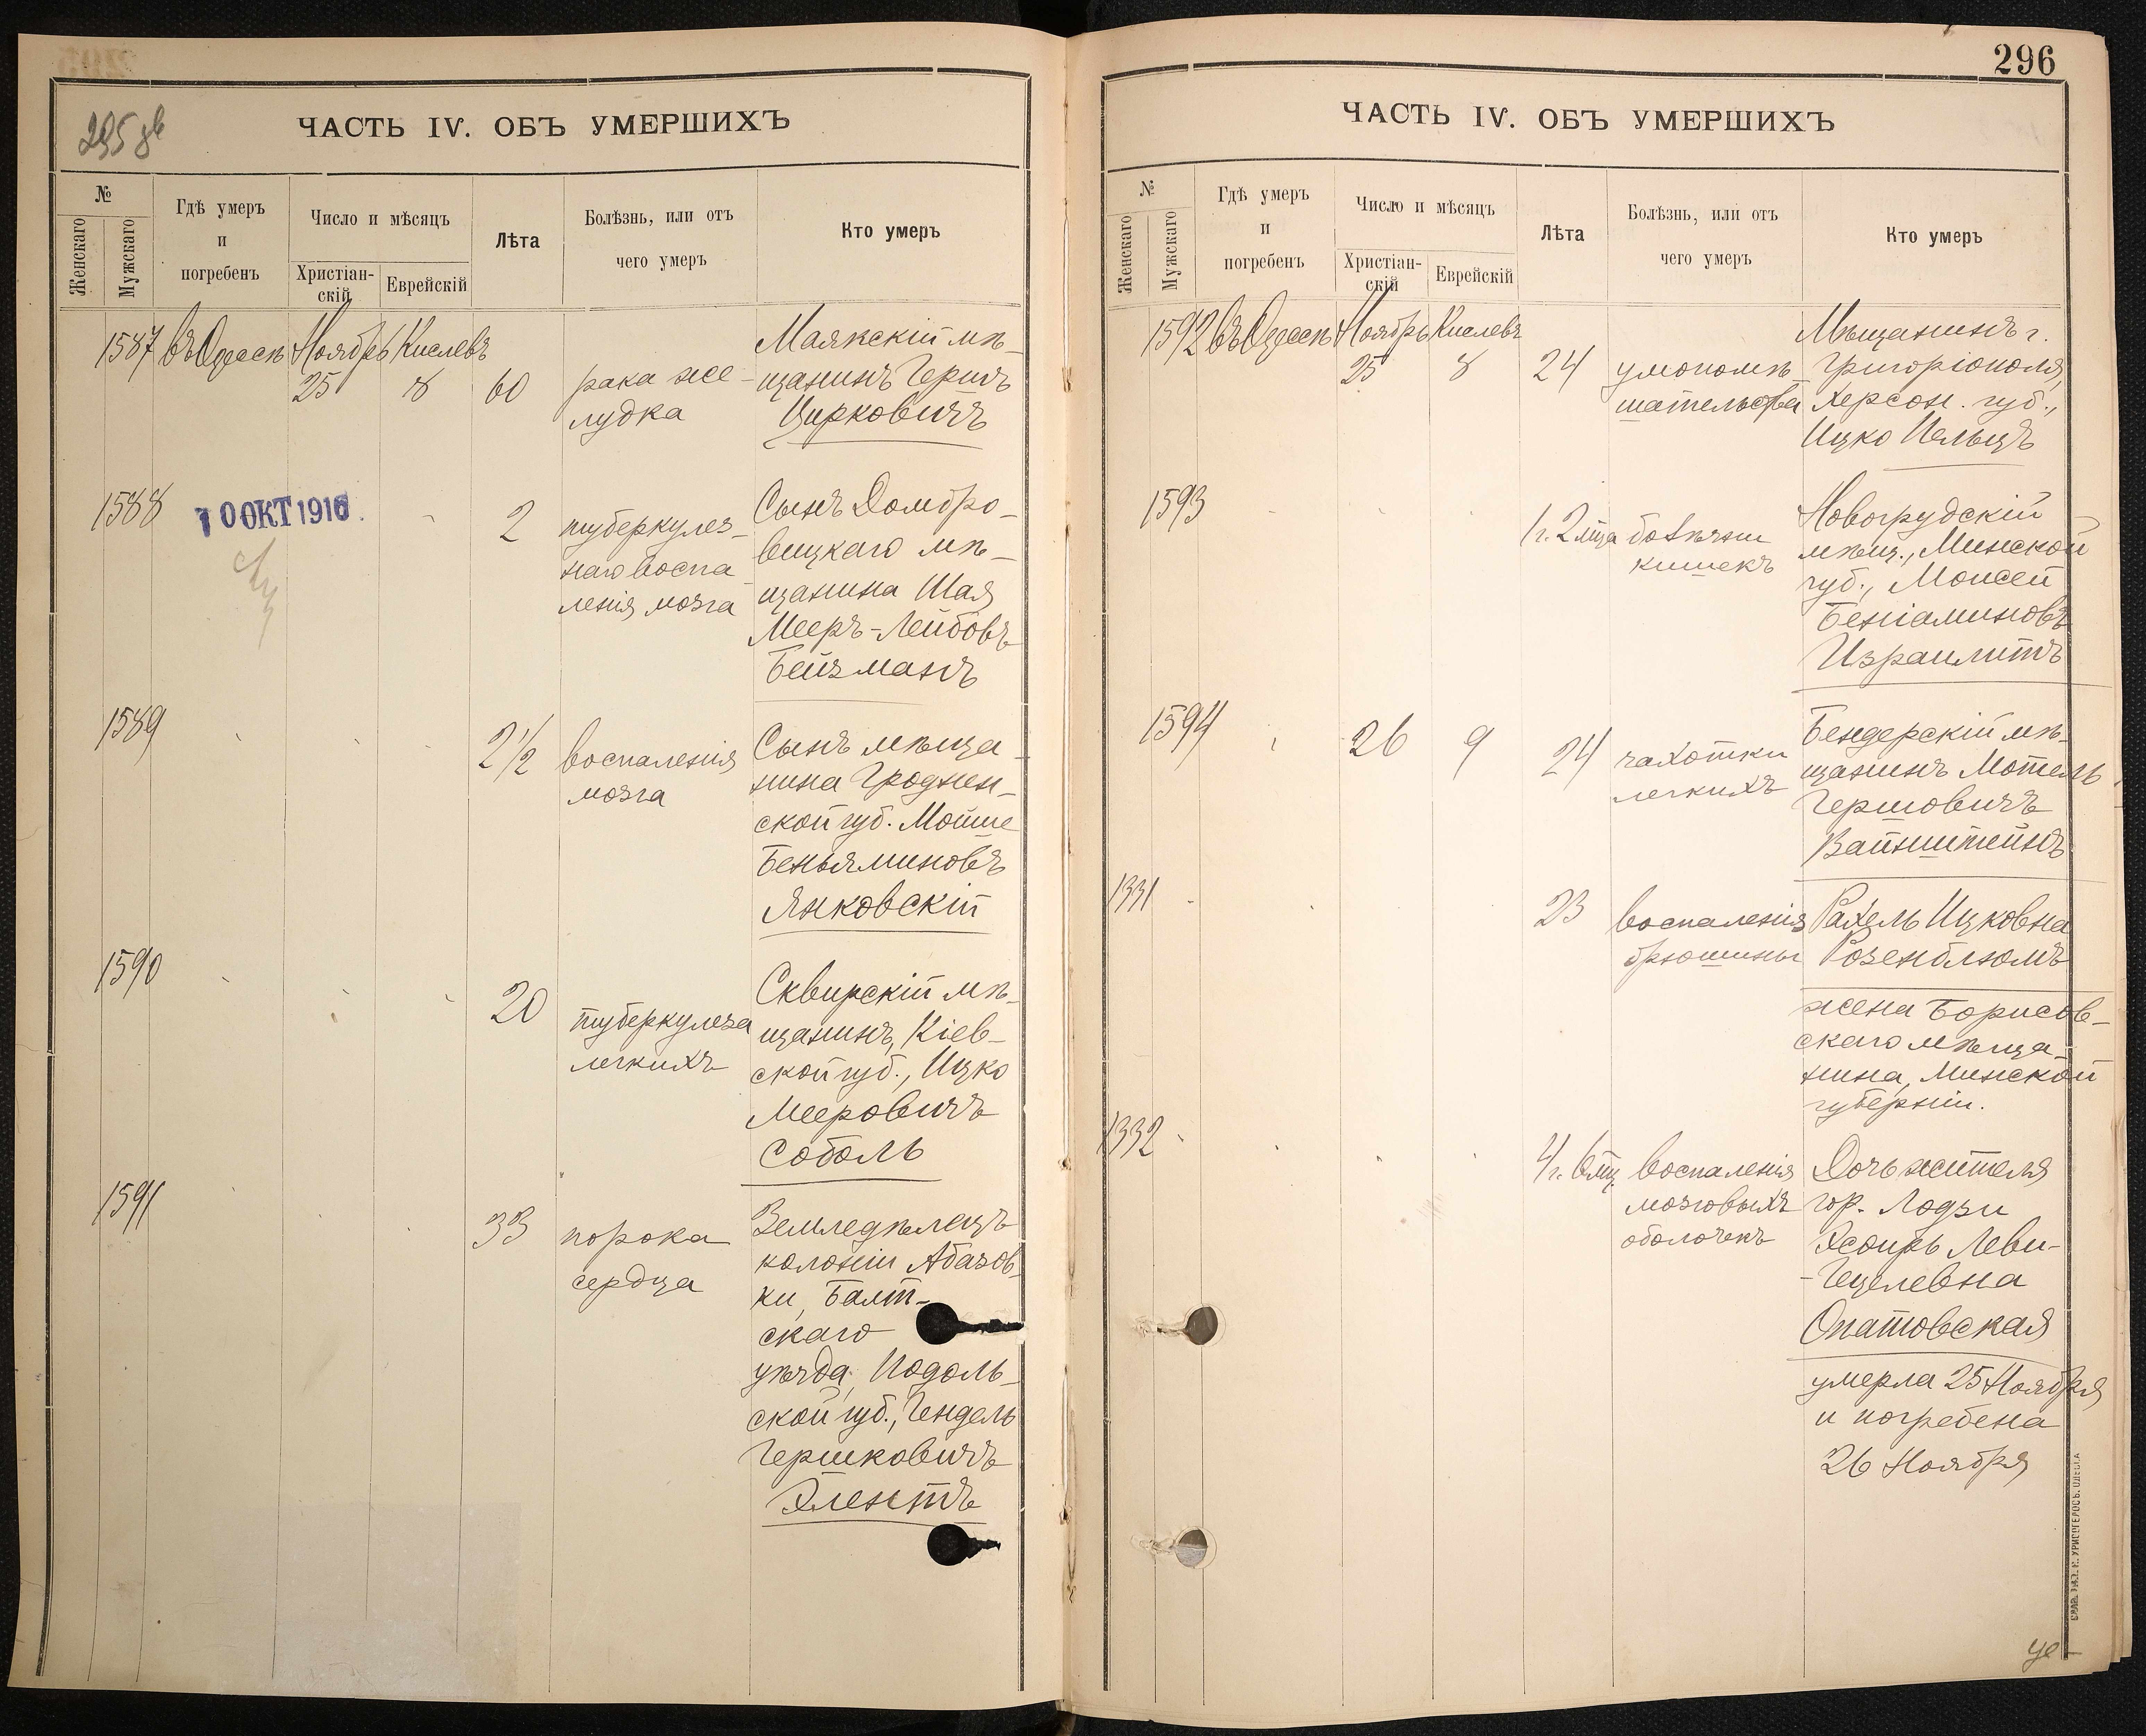 295 об
ЧАСТЬ IV. ОБЪ УМЕРШИХЪ
№
Женскаго
Мужскаго
Гдѣ умеръ
и
погребенъ
Число и мѣсяцъ
Христіан-
скій
Еврейскій
Лѣта
Болѣзнь, или отъ
чего умеръ
Кто умеръ
1587 въ Одессѣ Ноябрь Кислевъ
25 8 60
рака же-
лудка
Маякскій мѣ-
щанинъ Гершъ
Цирковичъ
1588
10 ОКТ 1916
2
туберкулез-
наго воспа
ленія мозга
Сынъ Домбро-
вицкаго мѣ-
щанина Шая
Мееръ-Лейбовъ
Бейзманъ
1589
2 1/2
воспаленія
мозга
Сынъ мѣща-
нина Гроднен-
ской губ. Мойше
Беньяминовъ
Янковскій
1590
20
туберкулеза
легкихъ
Сквирскій мѣ-
щанинъ, Кіев-
ской губ., Ицко
Мееровичъ
Соболь
1591
33
порока
сердца
Земледѣлецъ
колоніи Абазов-
ки, Балт-
скаго
уѣзда, Подоль-
ской губ., Гендель
Гершковичъ
Элентъ
296
ЧАСТЬ IV. ОБЪ УМЕРШИХЪ
№
Женскаго
Мужскаго
Гдѣ умеръ
и
погребенъ
Число и мѣсяцъ
Христіан-
скій
Еврейскій
Лѣта
Болѣзнь, или отъ
чего умеръ
Кто умеръ
1592 въ Одессѣ Ноябрь Кислевъ
25 8 24
умопомѣ
шательства
Мѣщанинъ г.
Григоріополя,
Херсон. губ.,
Ицко Пельцъ
1593
1 г. 2 мца
болѣзни
кишекъ
Новогрудскій
мѣщ., Минской
губ., Моисей
Беніаминовъ
Израилитъ
1594
26 9 24
чахотки
легкихъ
Бендерскій мѣ-
щанинъ Мотель
Гершовичъ
Вайнштейнъ
1331
23
воспаленія
брюшины
Рахель Ицковна
Розенблюмъ
жена Борисов-
скаго мѣща-
нина, Минской
губерніи.
1332
4 г. 6 мц.
воспаленія
мозговыхъ
оболочекъ
Дочь жителя
гор. Лодзи
Эсѳирь Леви-
-Гецелевна
Опатовская
умерла 25 Ноября
и погребена
26 Ноября